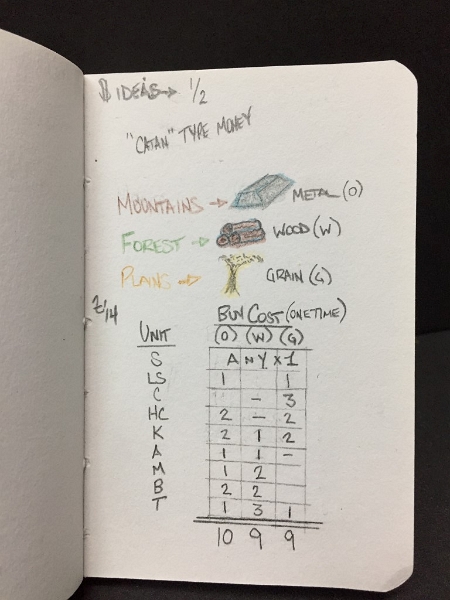 $ IDEAS → 1/2
"CATAN" TYPE MONEY
MOUNTAINS → METAL (O)
FOREST → WOOD (W)
PLAINS → GRAIN (G)
7/14
BUY COST (ONE TIME)
UNIT (O) (W) (G)
S ANY x1
LS 1 1
C - 3
HC 2 - 2
K 2 1 2
A 1 1 -
M 1 2
B 2 2
T 1 3 1
10 9 9